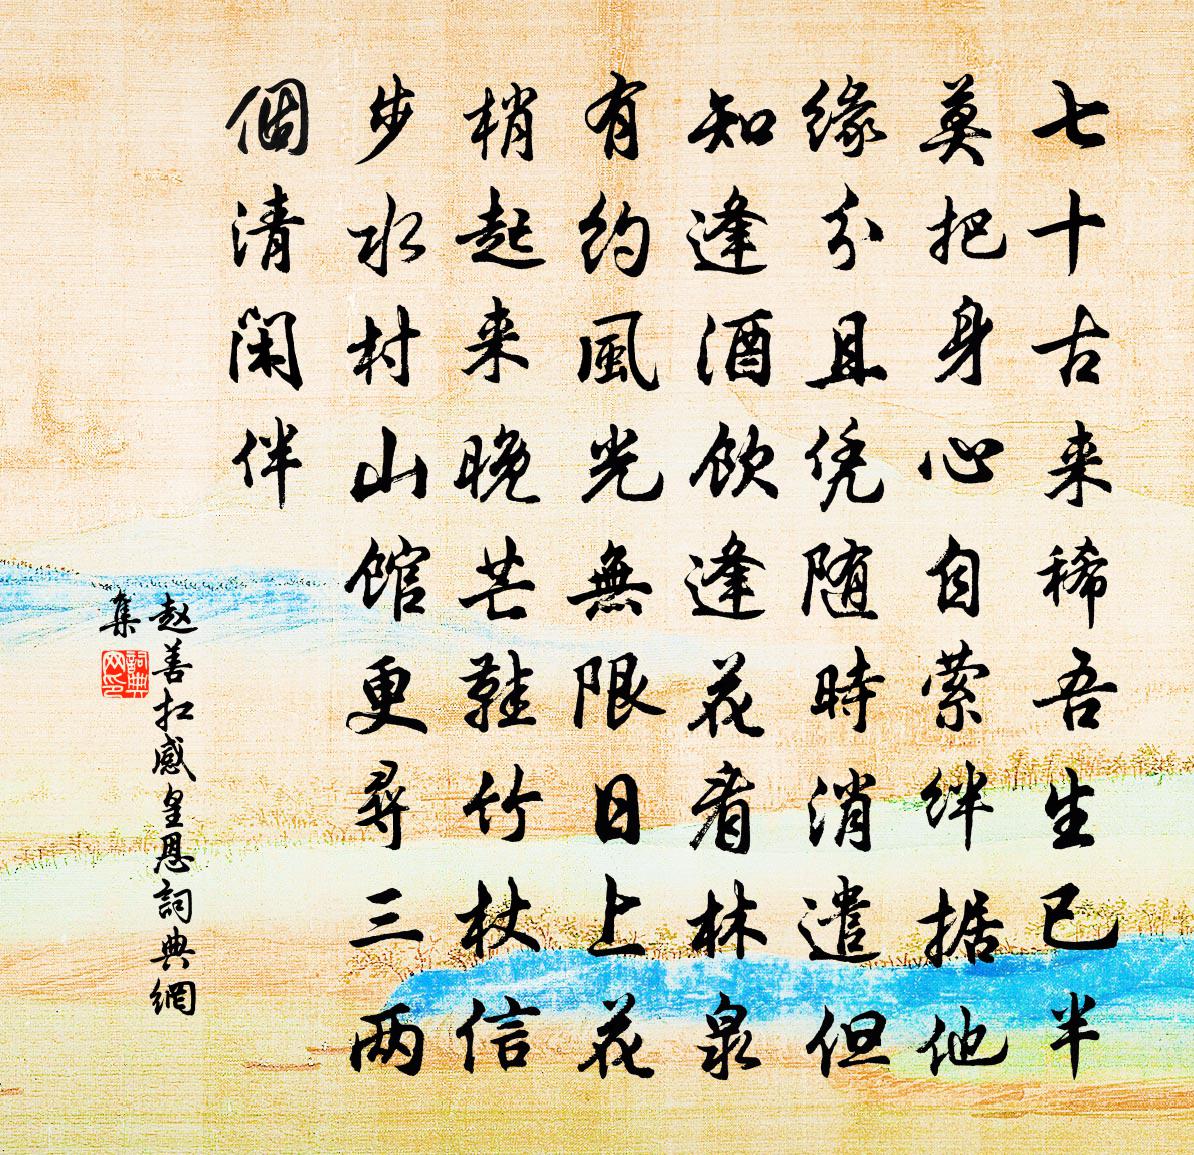 七十古来稀吾生已半
莫把身心自萦绊据他
缘分且凭随時消遣但
知逢酒飲逢花看林泉
有約風光無限日上花
梢起来晚芒鞋竹杖信
步水村山館更尋三两
個清閑伴
赵善扛感皇恩詞典網
集
詞典
网印